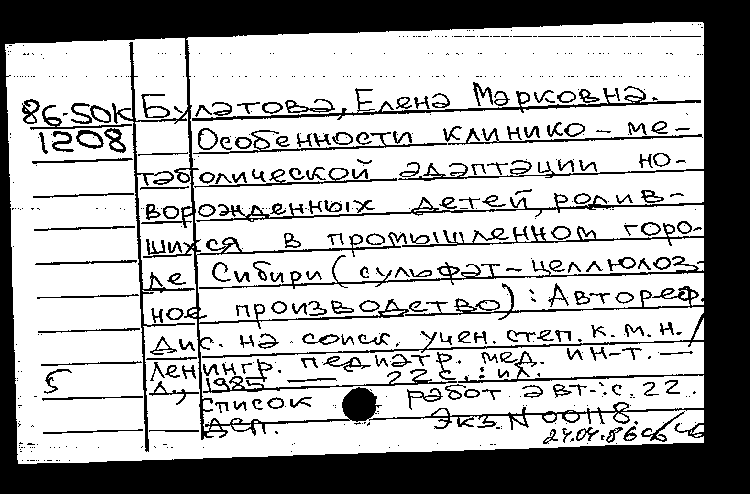 86-50К Булатова, Елена Марковна.
1208 Особенности клинико-ме-
таболической адаптации но-
ворожденных детей, родив-
шихся в промышленном горо-
де Сибири (сульфат-целлюлоз-
ное производство): Автореф.
дис. на соиск. учен. степ. к.м.н./
Ленингр. педиатр. мед. ин-т. —
5 Л., 1985 — 22 с.: ил.
Список работ авт.: с. 22.
Деп. Экз. N 00118.
24.04.86